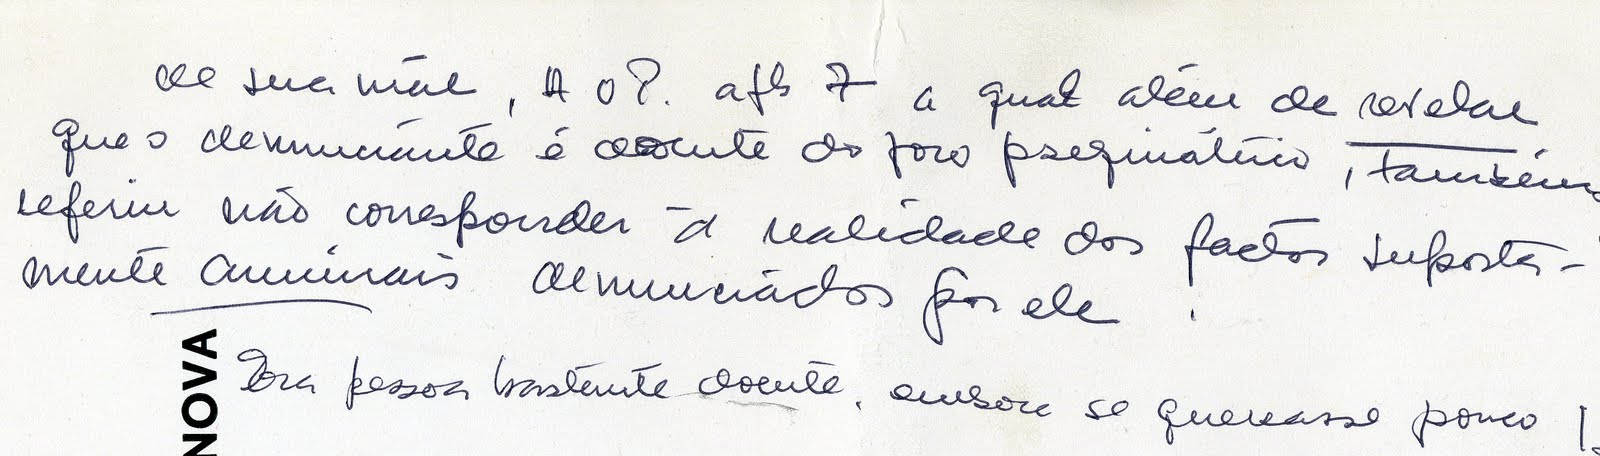 de sua mãe, A o P. a fls 7 a qual além de revelar
que o denunciante é doente do foro psiquiátrico, também
referiu não corresponder à realidade dos factos suposta-
mente criminais denunciados por ele.
Era pessoa bastante doente, embora se queixasse pouco!
NOVA